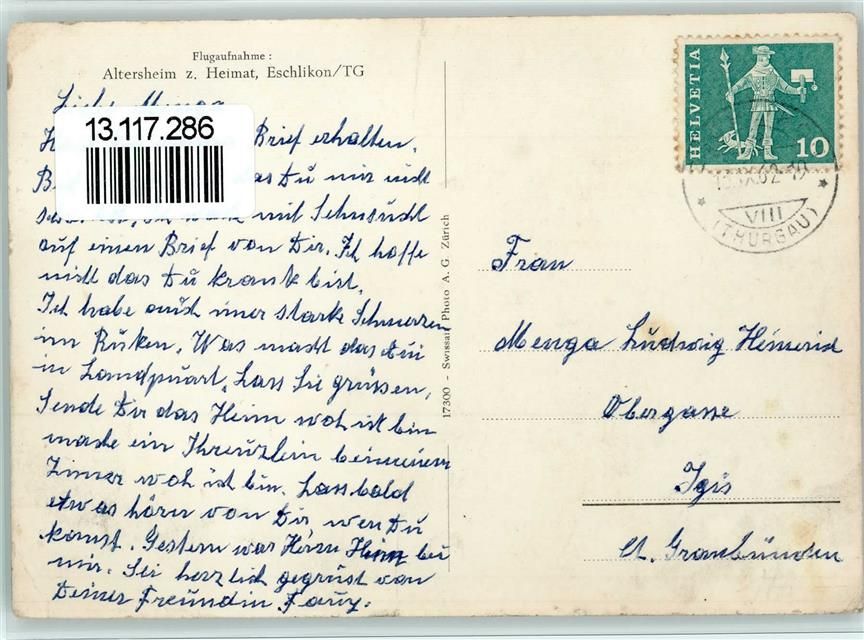 Flugaufnahme :
Altersheim z. Heimat, Eschlikon/TG
Liebe Menga
13.117.286
Brief erhalten.
Du mir nicht
mit Sehnsucht
auf einen Brief von Dir. Ich hoffe
nicht das Du krank bist.
Ich habe auch imer starke Schmerzen
im Rüken. Was macht das
in Landquart, Lass Sie grüssen,
Sende Dir das Heim woh ich bin
mache ein Kreuzlein bei meinem
Zimer woh ich bin. Lass bald
etwas hörn von Dir, wen Du
kanst. Gestern war Herr bei
mir. Sei herzlich gegrüst von
Deiner Freundin Fany.
17300 - Swissair Photo A. G. Zürich
HELVETIA
10
IX 62-19
VIII
(THURGAU)
Frau
Menga Ludwig Heinerich
Obergasse
Igis
Ct. Graubünden